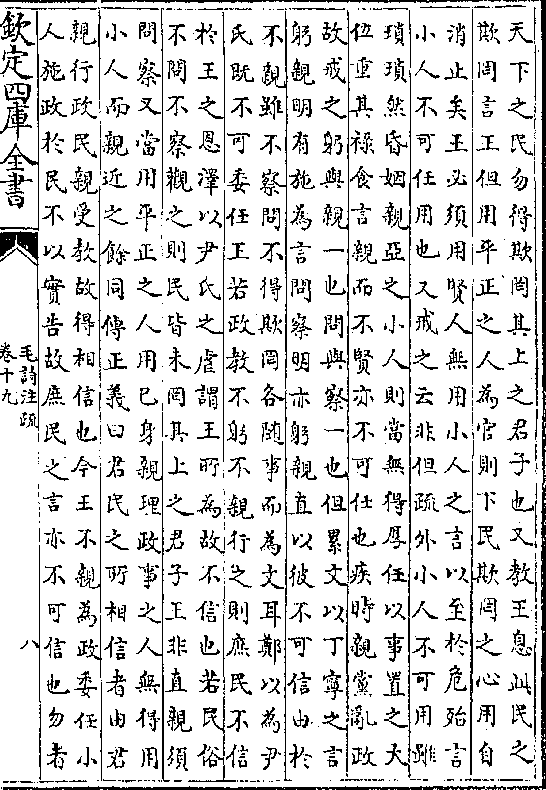 天下之民勿得欺罔其上之君子也又教王息此民之
欺罔言王但用平正之人為官則下民欺罔之心用自
消止矣王必須用賢人無用小人之言以至於危殆言
小人不可任用也又戒之云非但疏外小人不可用雖
瑣瑣然昏姻親亞之小人則當無得厚任以事置之大
位重其祿食言親而不賢亦不可任也疾時親黨亂政
故戒之躬與親一也問與察一也但累文以丁寧之言
躬親明有施為言問察明亦躬親直以彼不可信由於
不親雖不察問不得欺罔各隨事而為文耳鄭以為尹
氏既不可委任王若政教不躬不親行之則庶民不信
於王之恩澤以尹氏之虐謂王所為故不信也若民俗
不問不察觀之則民皆未罔其上之君子王非直親須
問察又當用平正之人用已身親理政事之人無得用
小人而親近之餘同傳正義曰君民之所相信者由君
親行政民親受教故得相信也今王不親為政委任小
人施政於民不以實告故庶民之言亦不可信也勿者
欽定四庫全書
毛詩注疏
卷十九
八